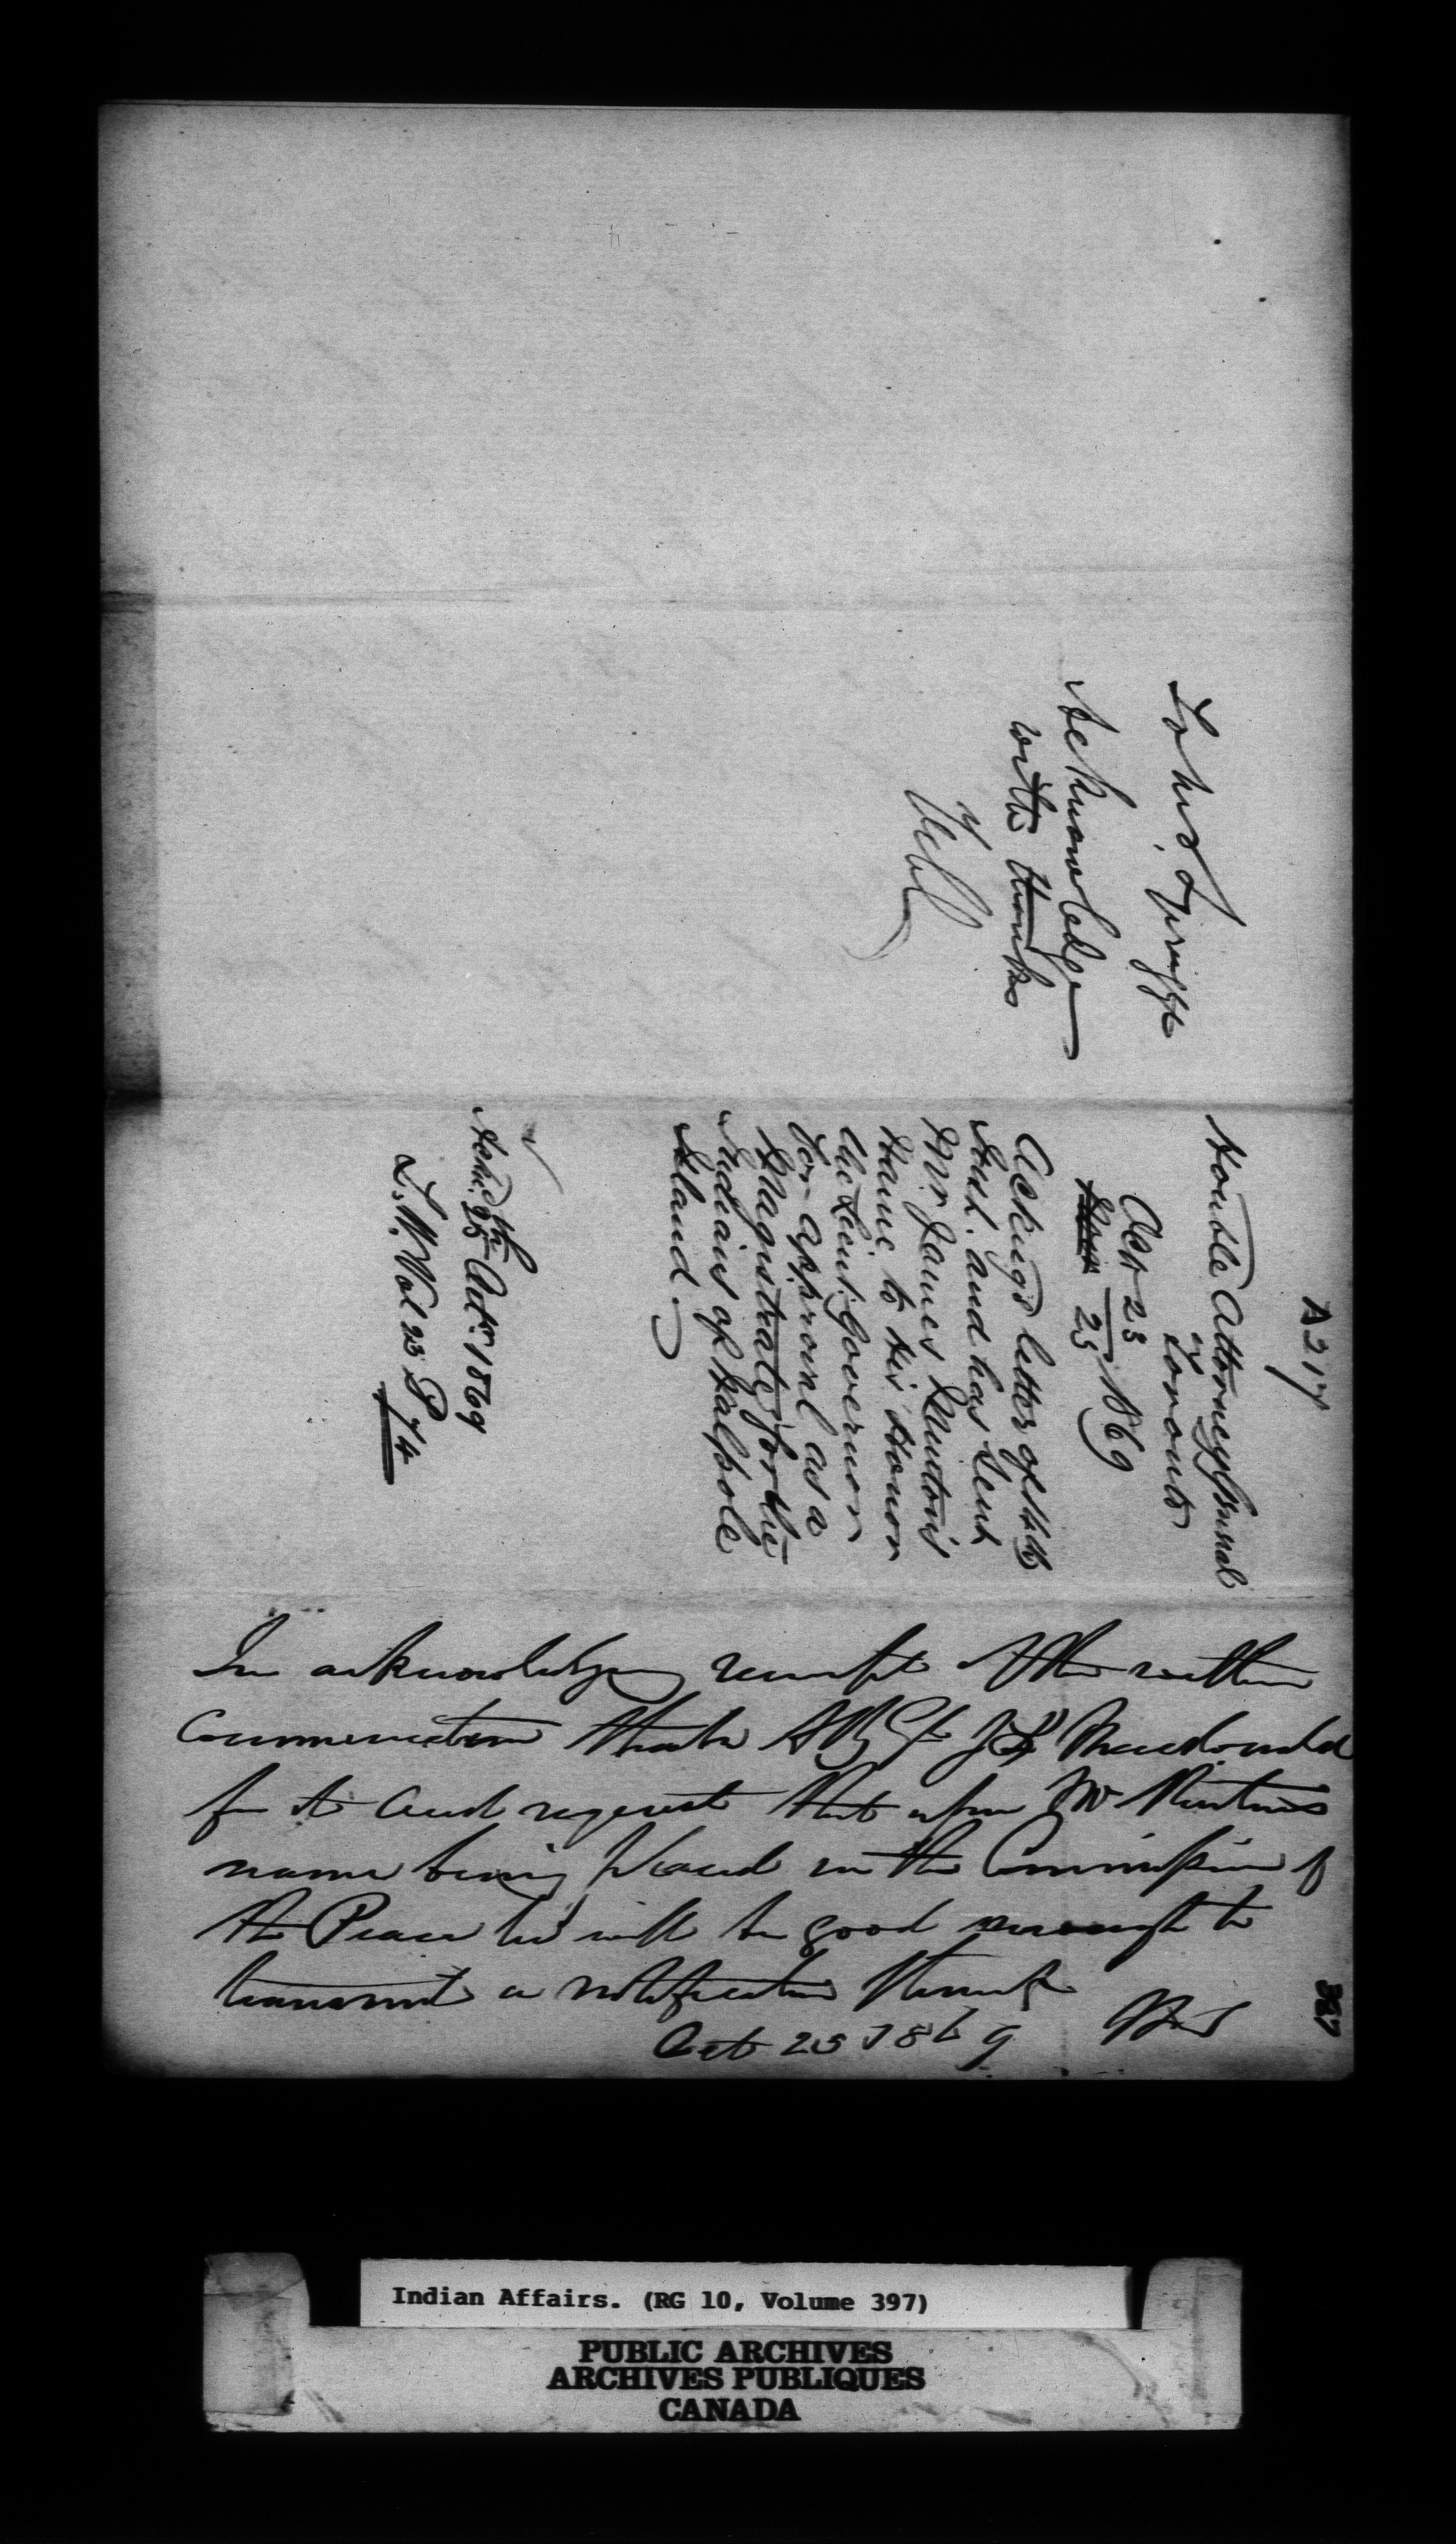 A 217
Honble Attorney General
Toronto
Oct 23
25 1869
Ackng's letter of 14th
Inst. and has sent
Mr James
Name to His Honor
the Lieut: Governor
for approval as a
Magistrate for the
Indians of Walpole
Island.
Ackd. 25th Octr. 1869
L. W. Vol 23 P 74
To Mr. Spragge
Acknowledge
with thanks
In acknowledging receipt of the within
Communication thank J S Macdonald
for it and request that upon Mr
name being placed in the Commission of
the Peace he will be good enough to
transmit a notification thereof
Oct 25 1869
387
Indian Affairs. (RG 10, Volume 397)
PUBLIC ARCHIVES
ARCHIVES PUBLIQUES
CANADA